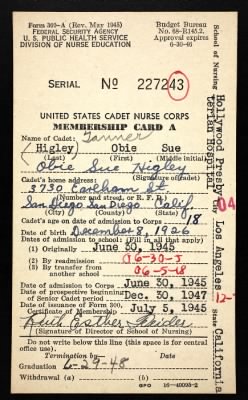 Form 300-A (Rev. May 1945)
FEDERAL SECURITY AGENCY
U. S. PUBLIC HEALTH SERVICE
DIVISION OF NURSE EDUCATION
Budget Bureau
No. 68-R145.2.
Approval expires
6-30-46
SERIAL No 227243
UNITED STATES CADET NURSE CORPS
MEMBERSHIP CARD A
Name of Cadet: Tanner
(Higley) Obie Sue
(Last) (First) (Middle initial)
Obie Sue Higley
(Signature of cadet)
Cadet's home address:
3730 Earlham St.
(Number and street, or R. F. D.)
San Diego San Diego Calif.
(City) (County) (State)
Cadet's age on date of admission to Corps: 18
Date of birth December 8, 1926
Dates of admission to school: (Fill in all that apply)
(1) Originally June 30, 1945
(2) By readmission 06-30-5
(3) By transfer from another school 06-5-18
Date of admission to Corps June 30, 1945
Date of prospective beginning of Senior Cadet period Dec. 30, 1947
Date of issuance of Form 300, Certificate of Membership July 5, 1945
Ruth Esther
(Signature of Director of School of Nursing)
Do not write below this line (this space is for central office use).
Termination by Date
Graduation 6-29-48
Withdrawal (a) (b)
GPO 16-40098-2
School of Nursing Hollywood Presbyterian Hospital
Los Angeles
State California
04
12-